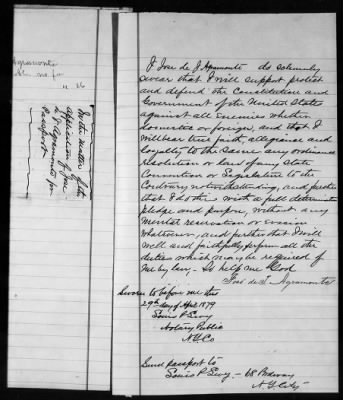 Agramonte
In the matter of the
application of Jose
de J. Agramonte for
Passport
I Jose de J Agramonte do solemnly
swear that I will support protect
and defend the Constitution and
Government of the United States
against all enemies whether
domestic or foreign, and that I
will bear true faith, allegiance and
loyalty to the same any ordinance
resolution or law of any State
Convention or Legislature to the
Contrary notwithstanding, and further
that I do this with a full determination
pledge and purpose, without any
mental reservation or evasion
whatsoever, and further that I will
well and faithfully perform all the
duties which may be required of
me by law. So help me God
Jose de J. Agramonte
Sworn to before me this
29th day of April 1879
Louis P Levy
Notary Public
N.Y. Co
Send passport to
Louis P. Levy - 68 Broadway
N.Y. City